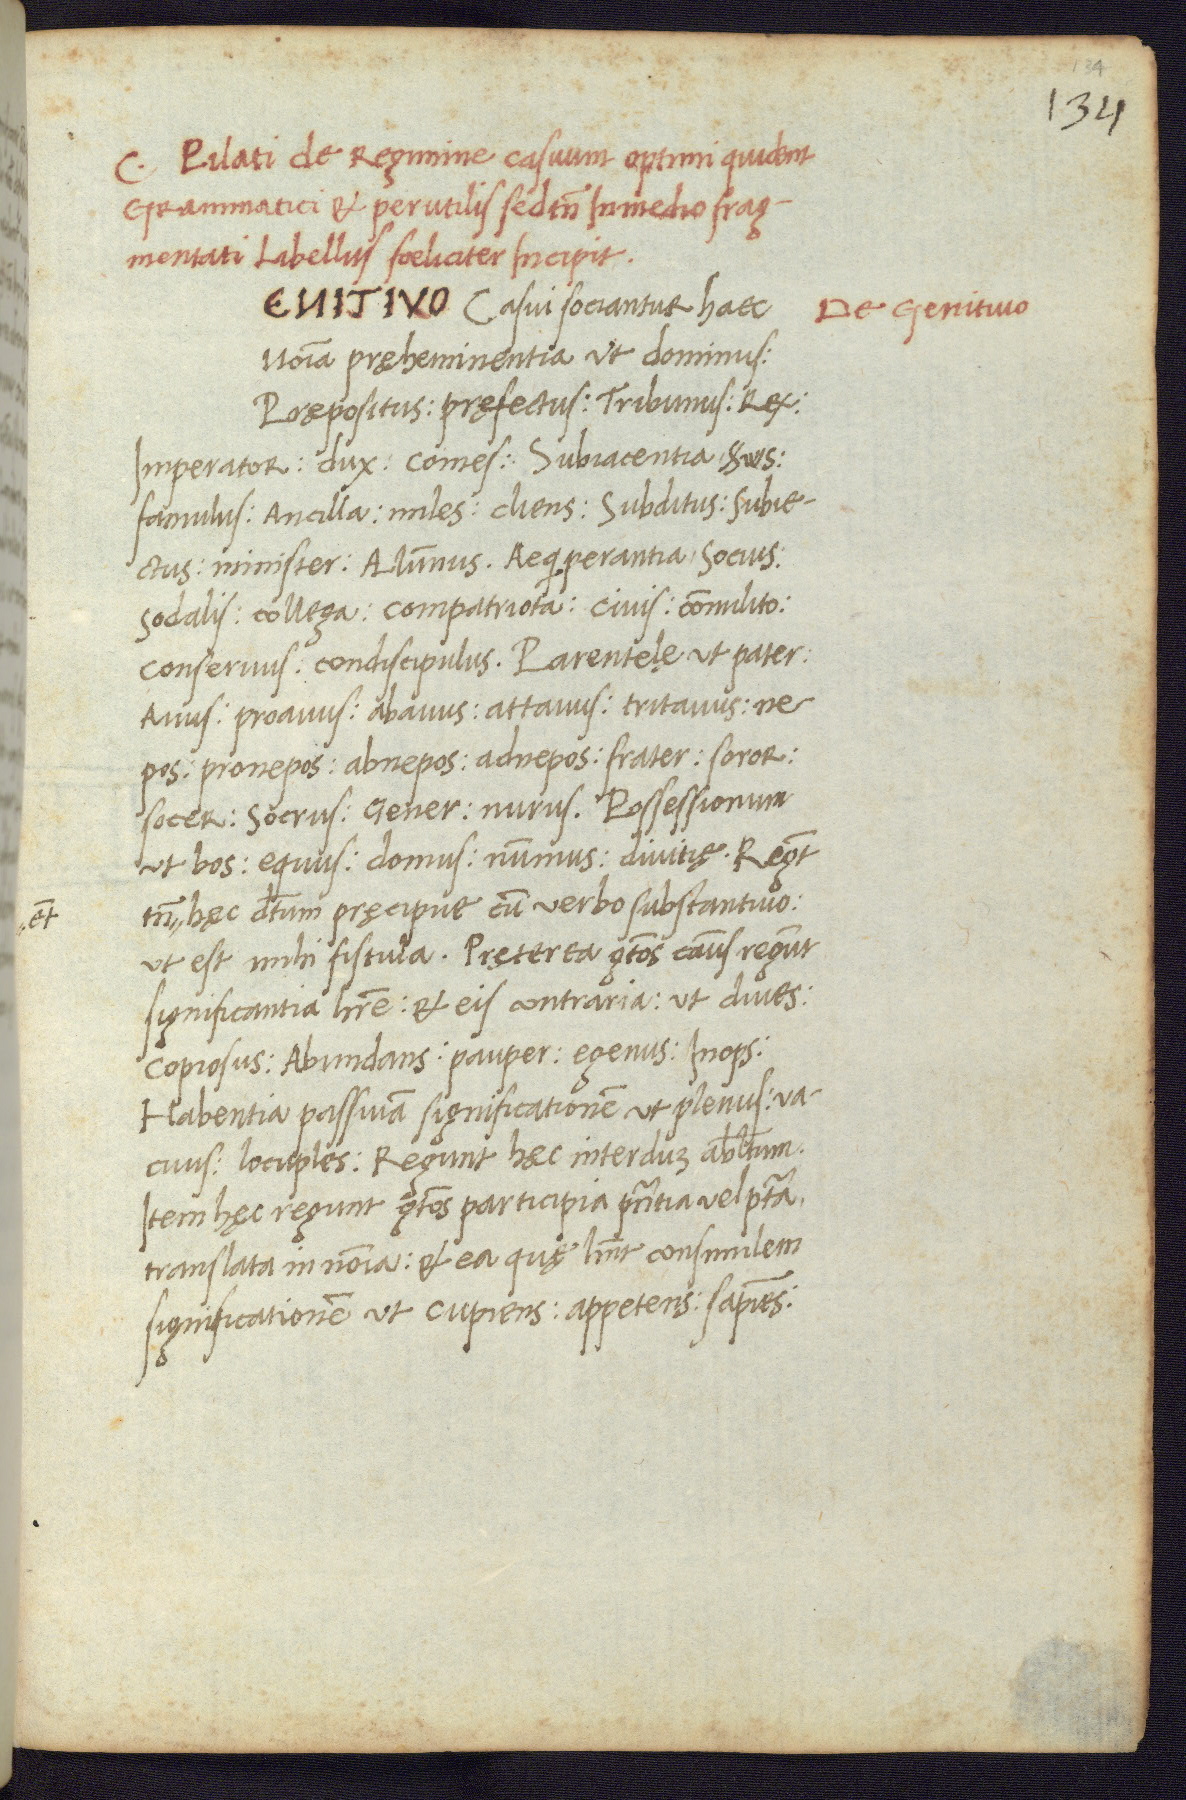 134
134
C. Pilati de Regimine casuum optimi quidem
Grammatici & perutilis sed tn̄ In medio frag-
mentati Labellus foeliciter Incipit.
ENITIVO Casui sociantur haec
De Genitiuo
noīa pręheminentia ut dominus:
Prępositus: pręfectus: Tribunus: Rex:
Imperator: dux: comes: Subiacentia
famulus: Ancilla: miles: cliens: Subditus: Subie-
ctus: minister: Alūnus. Aeqiperantia Socius:
sodalis: collega: compatriota: Ciuis: cōmilito:
conseruus: condiscipulus. Parentelę ut pater:
Auus: proauus: abauus: attauus: tritauus: ne-
pos: pronepos: abnepos: adnepos: frater: soror:
socer: Socrus: Gener: nurus. Possessionum
ut bos: equus: domus: nūmus: diuitię. Regūt
et̄
tn̄ hęc dt̄um pręcipue cū verbo substantiuo:
ut est mihi fistula. Pręterea gt̄os cāus regūnt
significantia hr̄e: & eis contraria: ut diues:
copiosus: Abundans: pauper: egenus: Inops:
Habentia passiuā significationē ut plenus: va-
cuus: locuples: Regunt hęc interduʒ abl̄tum.
Item hęc regunt gt̄os participia pn̄tia vel pt̄a
translata in noīa: & ea quę hn̄t consimilem
significationē ut cupiens: appetens: sapiēs: